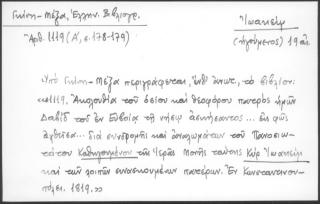 Γκίνη - Μέξα, Ἑλλην. Βιβλιογρ.
Ἀρθ. 1119 (Α', σ. 178-179)
Ἰωακείμ
(ἡγούμενος) 19 αἰ.
Ὑπὸ Γκίνη - Μέξα περιγράφεται, ἔνθ' ἄνωτ., τὸ βιβλίον:
«1119. Ἀκολουθία τοῦ ὁσίου καὶ θεοφόρου πατρὸς ἡμῶν
Δαβὶδ τοῦ ἐν Εὐβοίᾳ τῇ νήσῳ ἀσκήσαντος... ἐν φῶς
ἀχθεῖσα... διὰ συνδρομῆς καὶ ἀναλωμάτων τοῦ Πανοσιω-
τάτου Καθηγουμένου τῆς Ἱερᾶς Μονῆς ταύτης Κὺρ Ἰωακεὶμ
καὶ τῶν λοιπῶν συνασκουμένων πατέρων. Ἐν Κωνσταντινου-
πόλει. 1819.»